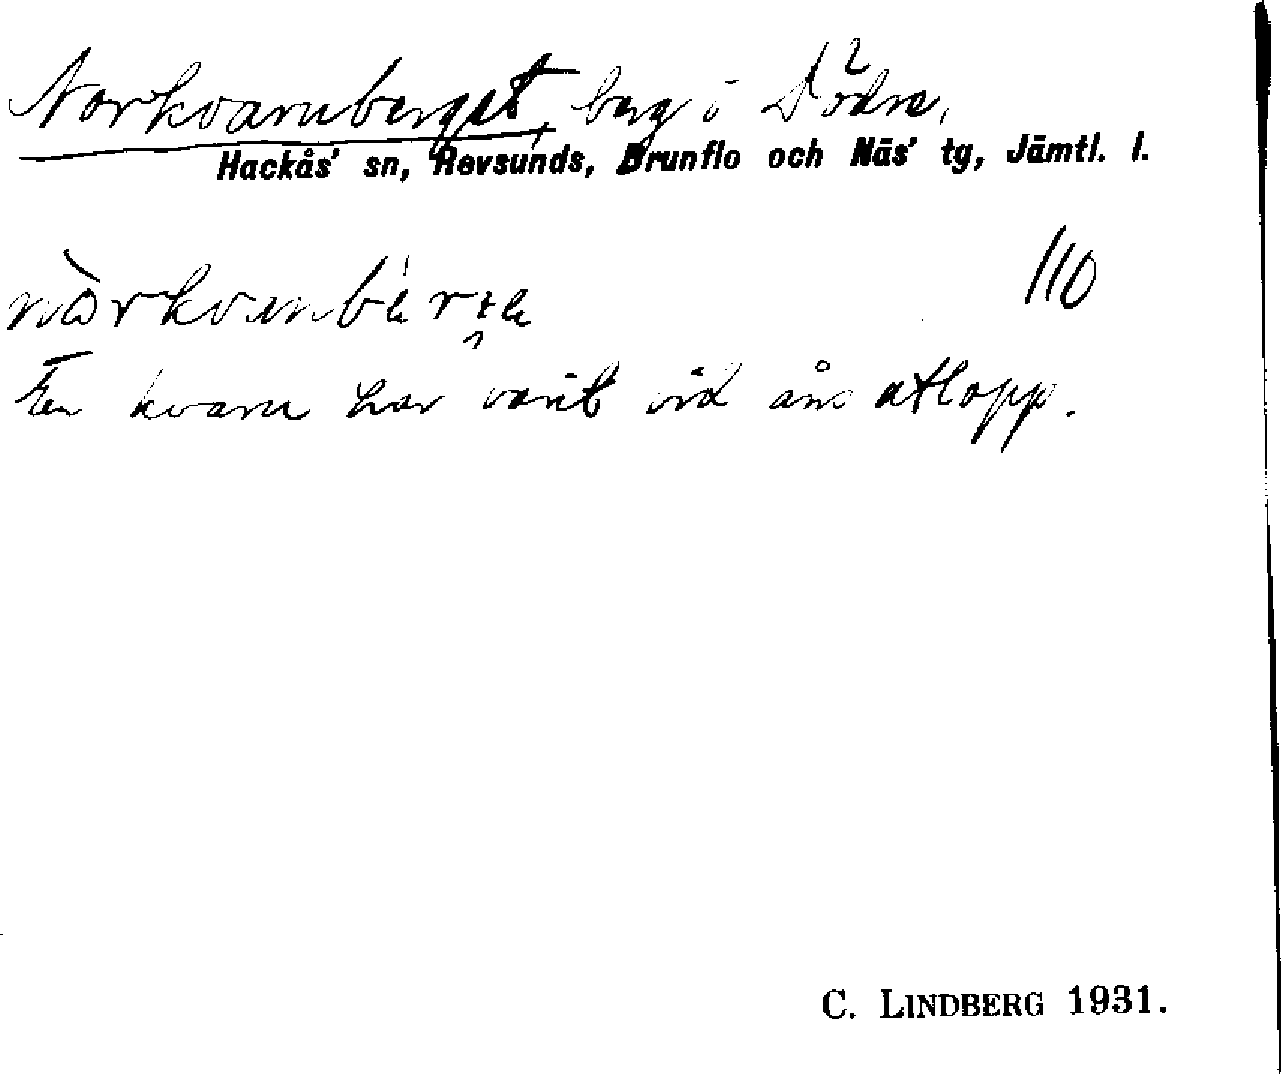 Norkvarnberget, berg i Södra,
Hackås' sn, Revsunds, Brunflo och Näs' tg, Jämtl. l.
110
En kvarn har varit vid åns utlopp.
C. LINDBERG 1931.